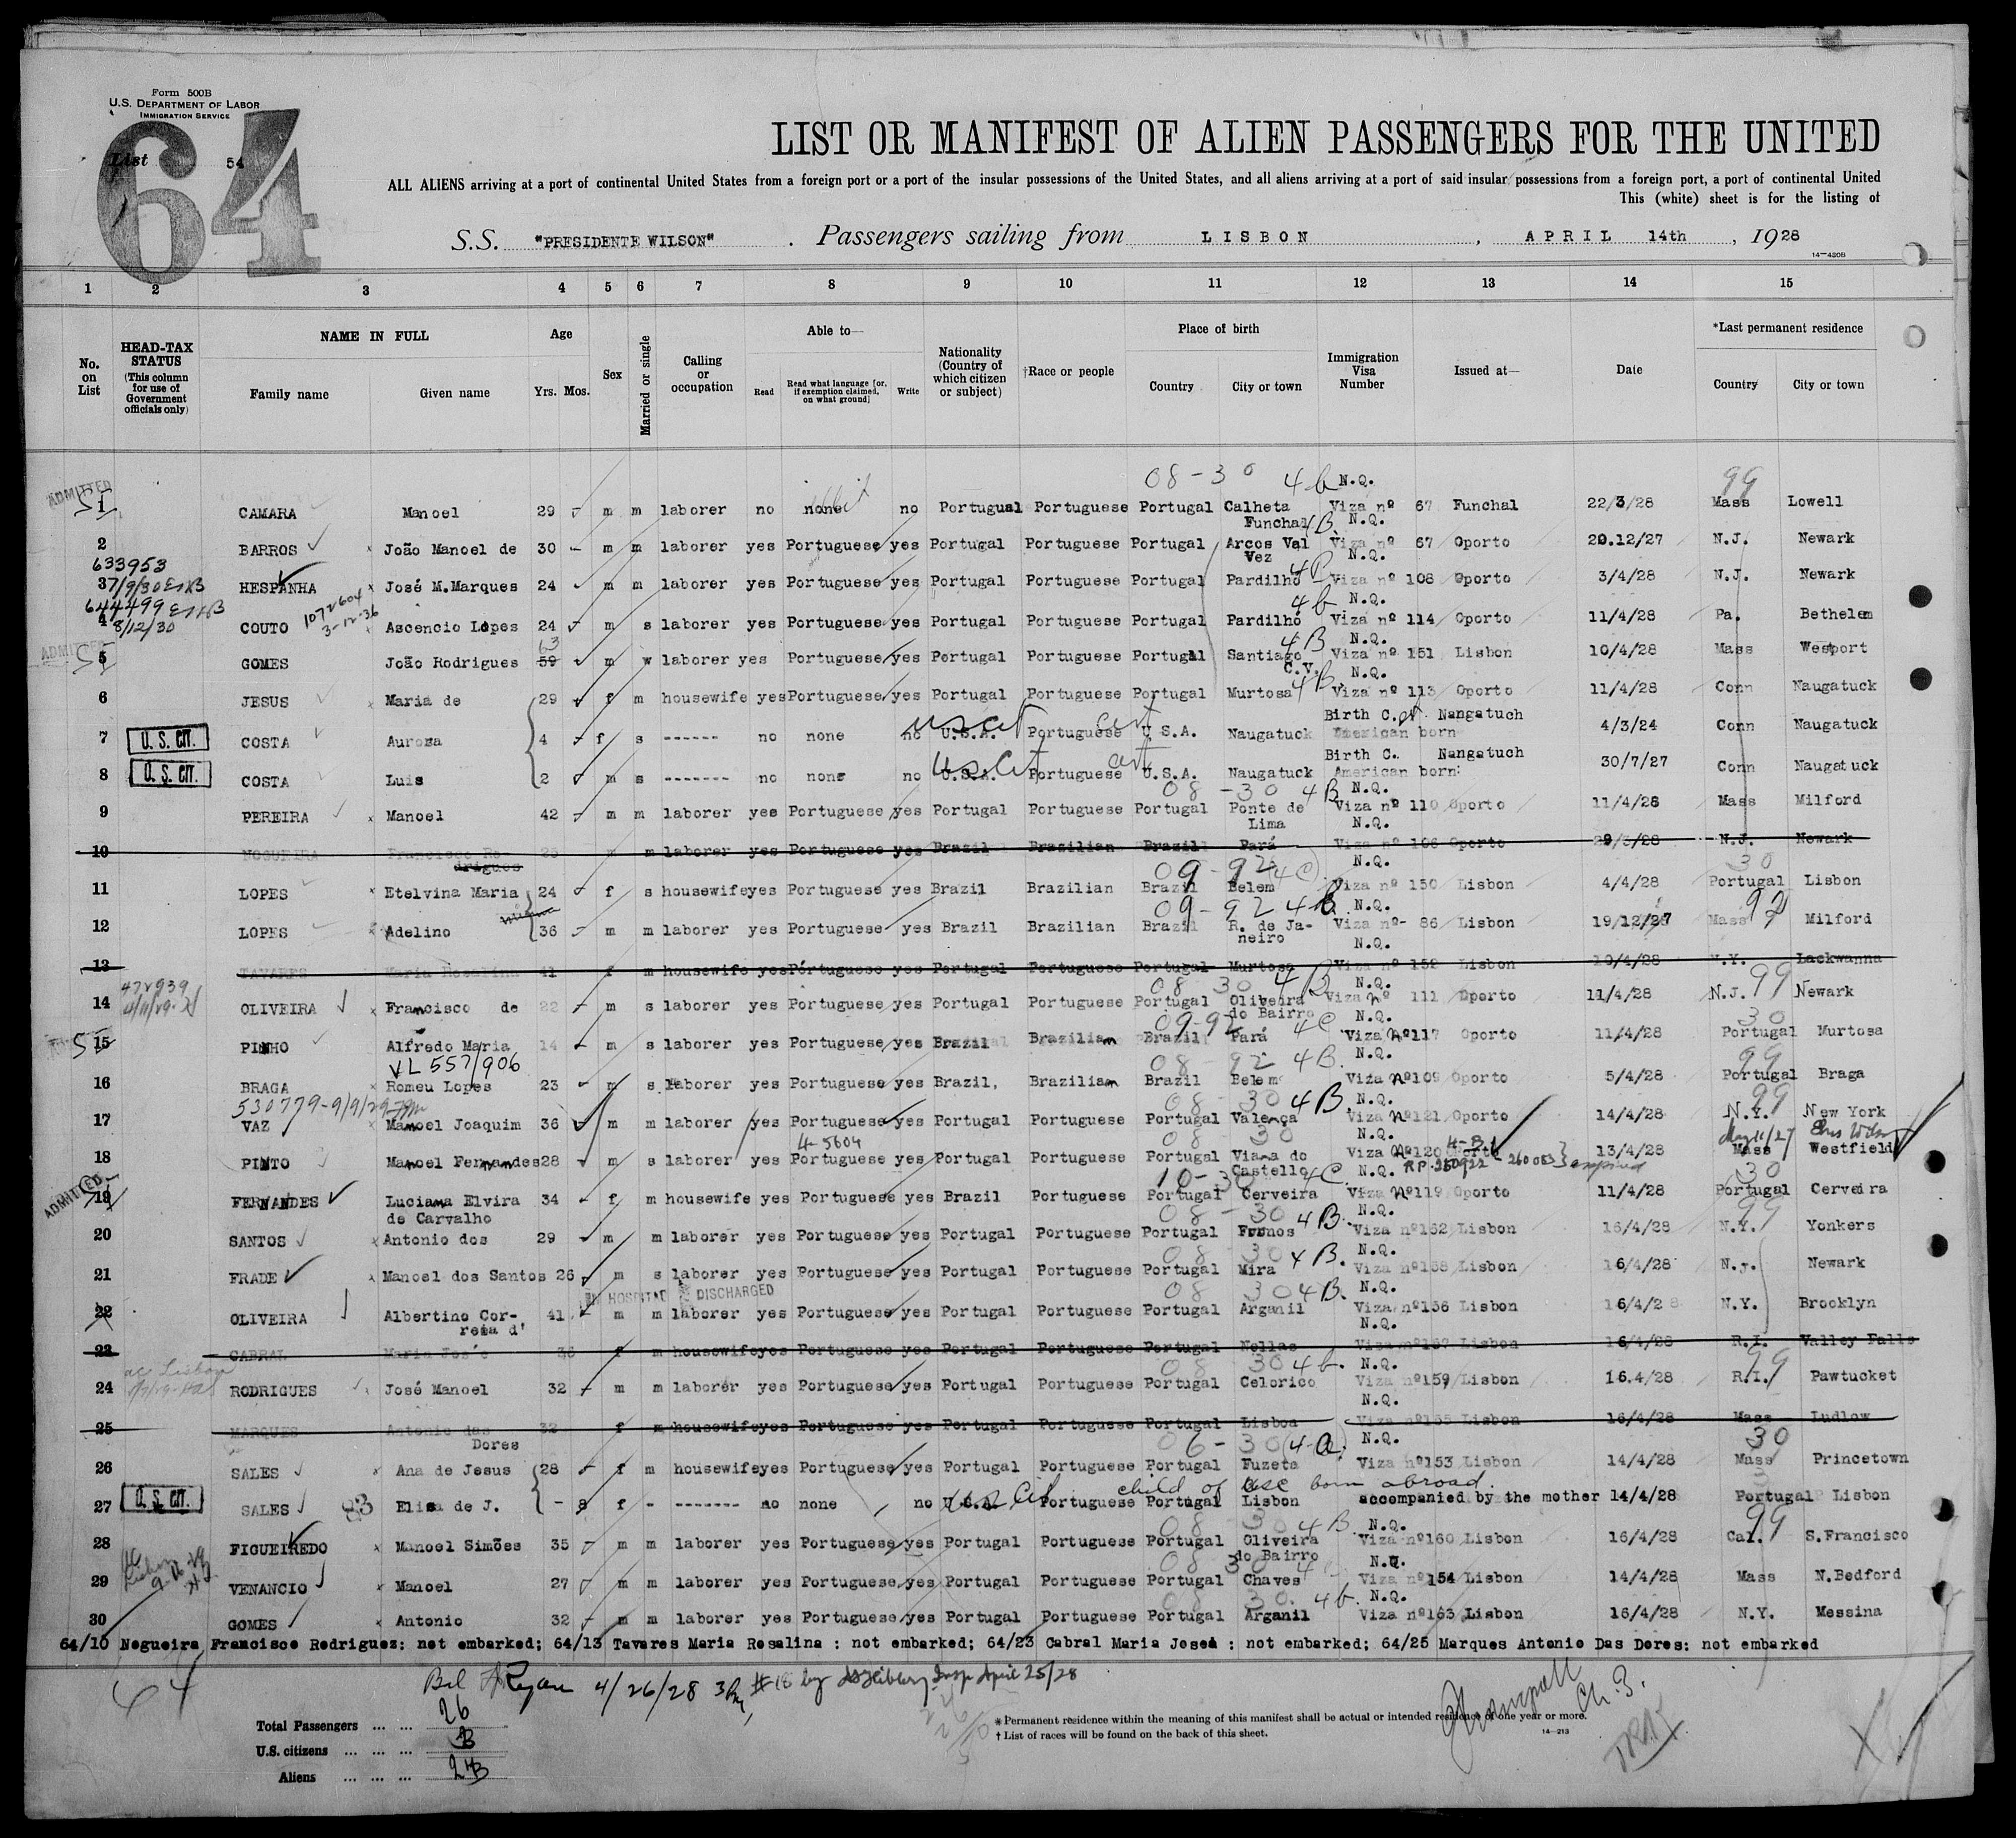 Form 500B
U.S. DEPARTMENT OF LABOR
IMMIGRATION SERVICE
64
List 54
LIST OR MANIFEST OF ALIEN PASSENGERS FOR THE UNITED
ALL ALIENS arriving at a port of continental United States from a foreign port or a port of the insular possessions of the United States, and all aliens arriving at a port of said insular possessions from a foreign port, a port of continental United
This (white) sheet is for the listing of
S.S. "PRESIDENTE WILSON" . Passengers sailing from LISBON , APRIL 14th , 1928
14-430B
1 2 3 4 5 6 7 8 9 10 11 12 13 14 15
No. on List
HEAD-TAX STATUS (This column for use of Government officials only)
NAME IN FULL
Family name Given name
Age
Yrs. Mos.
Sex
Married or single
Calling or occupation
Able to—
Read Read what language [or, if exemption claimed, on what ground] Write
Nationality (Country of which citizen or subject)
†Race or people
Place of birth
Country City or town
Immigration Visa Number
Issued at—
Date
*Last permanent residence
Country City or town
08-30 4b N.Q. 99
ADMITTED
1 CAMARA Manoel 29 m m laborer no none no Portugual Portuguese Portugal Calheta Viza nº 67 Funchal 22/3/28 Mass Lowell
Funchal 4B N.Q.
2 BARROS João Manoel de 30 m m laborer yes Portuguese yes Portugal Portuguese Portugal Arcos Val Viza nº 67 Oporto 20.12/27 N.J. Newark
633953 Vez N.Q.
3 7/9/30 HESPANHA José M.Marques 24 m m laborer yes Portuguese yes Portugal Portuguese Portugal Pardilhó 4B Viza nº 108 Oporto 3/4/28 N.J. Newark
644499 1072604 4b N.Q.
4 8/12/30 COUTO 3-12-36 Ascencio Lopes 24 m s laborer yes Portuguese yes Portugal Portuguese Portugal Pardilhó Viza nº 114 Oporto 11/4/28 Pa. Bethelem
ADMITTED 63 4B N.Q.
5 GOMES João Rodrigues 59 m w laborer yes Portuguese yes Portugal Portuguese Portugal Santiago Viza nº 151 Lisbon 10/4/28 Mass Westport
C.V. N.Q.
6 JESUS Maria de 29 f m housewife yes Portuguese yes Portugal Portuguese Portugal Murtosa 4B Viza nº 113 Oporto 11/4/28 Conn Naugatuck
US Cit Birth C. Nangatuch
7 U.S. CIT. COSTA Aurora 4 f s ------ no none no U.S.A. Portuguese U.S.A. Naugatuck American born 4/3/24 Conn Naugatuck
US Cit Birth C. Nangatuch
8 U.S. CIT. COSTA Luis 2 m s ------- no none no U.S.A. Portuguese U.S.A. Naugatuck American born: 30/7/27 Conn Naugatuck
08-30 4B N.Q.
9 PEREIRA Manoel 42 m m laborer yes Portuguese yes Portugal Portuguese Portugal Ponte de Viza nº 110 Oporto 11/4/28 Mass Milford
Lima N.Q.
10 NOGUEIRA Francisco Ro- 25 m m laborer yes Portuguese yes Brazil Brazilian Brazil Pará Viza nº 106 Oporto 29/3/28 N.J. Newark
drigues 09-92 4C N.Q. 30
11 LOPES Etelvina Maria 24 f s housewife yes Portuguese yes Brazil Brazilian Brazil Belem Viza nº 150 Lisbon 4/4/28 Portugal Lisbon
09-92 4B N.Q. 99
12 LOPES Adelino 36 m m laborer yes Portuguese yes Brazil Brazilian Brazil R. de Ja- Viza nº- 86 Lisbon 19/12/27 Mass Milford
neiro N.Q.
13 TAVARES Maria Rosalina 41 f m housewife yes Pórtuguese yes Portugal Portuguese Portugal Murtosa Viza nº 152 Lisbon 10/4/28 N.Y. Lackwanna
472939 08 30 4B N.Q. 99
14 4/11/29 OLIVEIRA Francisco de 22 m s laborer yes Portuguese yes Portugal Portuguese Portugal Oliveira Viza nº 111 Oporto 11/4/28 N.J. Newark
do Bairro N.Q.
09-92 4C 30
15 PINHO Alfredo Maria 14 m s laborer yes Portuguese yes Brazil Brazilian Brazil Pará Viza nº117 Oporto 11/4/28 Portugal Murtosa
VL 557/906 08-92 4B N.Q. 99
16 BRAGA Romeu Lopes 23 m s laborer yes Portuguese yes Brazil, Brazilian Brazil Belem Viza nº109 Oporto 5/4/28 Portugal Braga
530779-9/9/29 08-30 4B N.Q. 99
17 VAZ Manoel Joaquim 36 m m laborer yes Portuguese yes Portugal Portuguese Portugal Valença Viza nº121 Oporto 14/4/28 N.Y. New York
4-5604 08 30 N.Q. 4-B
18 PINTO Manoel Fernandes 28 m s laborer yes Portuguese yes Portugal Portuguese Portugal Viana do Viza nº120 Oporto 13/4/28 Mass Westfield
ADMITTED 10-30 Castello 4C N.Q. 30
19 FERNANDES Luciana Elvira 34 f m housewife yes Portuguese yes Brazil Portuguese Portugal Cerveira Viza nº119 Oporto 11/4/28 Portugal Cerveira
de Carvalho 08-30 4B. N.Q. 99
20 SANTOS Antonio dos 29 m m laborer yes Portuguese yes Portugal Portuguese Portugal Fornos Viza nº162 Lisbon 16/4/28 N.Y. Yonkers
08-30 4B. N.Q.
21 FRADE Manoel dos Santos 26 m s laborer yes Portuguese yes Portugal Portuguese Portugal Mira Viza nº158 Lisbon 16/4/28 N.J. Newark
IN HOSPITAL DISCHARGED 08 30 4B. N.Q.
22 OLIVEIRA Albertino Cor- 41 m m laborer yes Portuguese yes Portugal Portuguese Portugal Arganil Viza nº156 Lisbon 16/4/28 N.Y. Brooklyn
reia d' N.Q.
23 CABRAL Maria José 36 f m housewife yes Portuguese yes Portugal Portuguese Portugal Nellas Viza nº157 Lisbon 16/4/28 R.I. Valley Falls
08 30 4b. N.Q. 99
24 RODRIGUES José Manoel 32 m m laborer yes Portuguese yes Portugal Portuguese Portugal Celorico Viza nº159 Lisbon 16.4/28 R.I. Pawtucket
N.Q.
25 MARQUES Antonio das 32 f m housewife yes Portuguese yes Portugal Portuguese Portugal Lisboa Viza nº155 Lisbon 16/4/28 Mass Ludlow
Dores 06-30 (4-a) N.Q. 30
26 SALES Ana de Jesus 28 f m housewife yes Portuguese yes Portugal Portuguese Portugal Fuzeta Viza nº153 Lisbon 14/4/28 Mass Princetown
child of USC born abroad.
27 U.S. CIT. SALES 83 Elisa de J. - 8 f - ------- no none no Portuguese Portugal Lisbon accompanied by the mother 14/4/28 Portugal Lisbon
08 30 4B N.Q. 99
28 FIGUEIREDO Manoel Simões 35 m m laborer yes Portuguese yes Portugal Portuguese Portugal Oliveira Viza nº160 Lisbon 16/4/28 Cal. S.Francisco
do Bairro N.Q.
08 30
29 VENANCIO Manoel 27 m m laborer yes Portuguese yes Portugal Portuguese Portugal Chaves Viza nº154 Lisbon 14/4/28 Mass N.Bedford
08 30. 4b. N.Q.
30 GOMES Antonio 32 m m laborer yes Portuguese yes Portugal Portuguese Portugal Arganil Viza nº163 Lisbon 16/4/28 N.Y. Messina
64/10 Nogueira Francisco Rodriguez: not embarked; 64/13 Tavares Maria Rosalina : not embarked; 64/23 Cabral Maria Joseá : not embarked; 64/25 Marques Antonio Das Dores: not embarked
Ryan 4/26/28 #18 by Insp April 25/28
Total Passengers ... ... 26
U.S. citizens ... ... ... 3
Aliens ... ... ...
* Permanent residence within the meaning of this manifest shall be actual or intended residence of one year or more.
† List of races will be found on the back of this sheet.
14-213